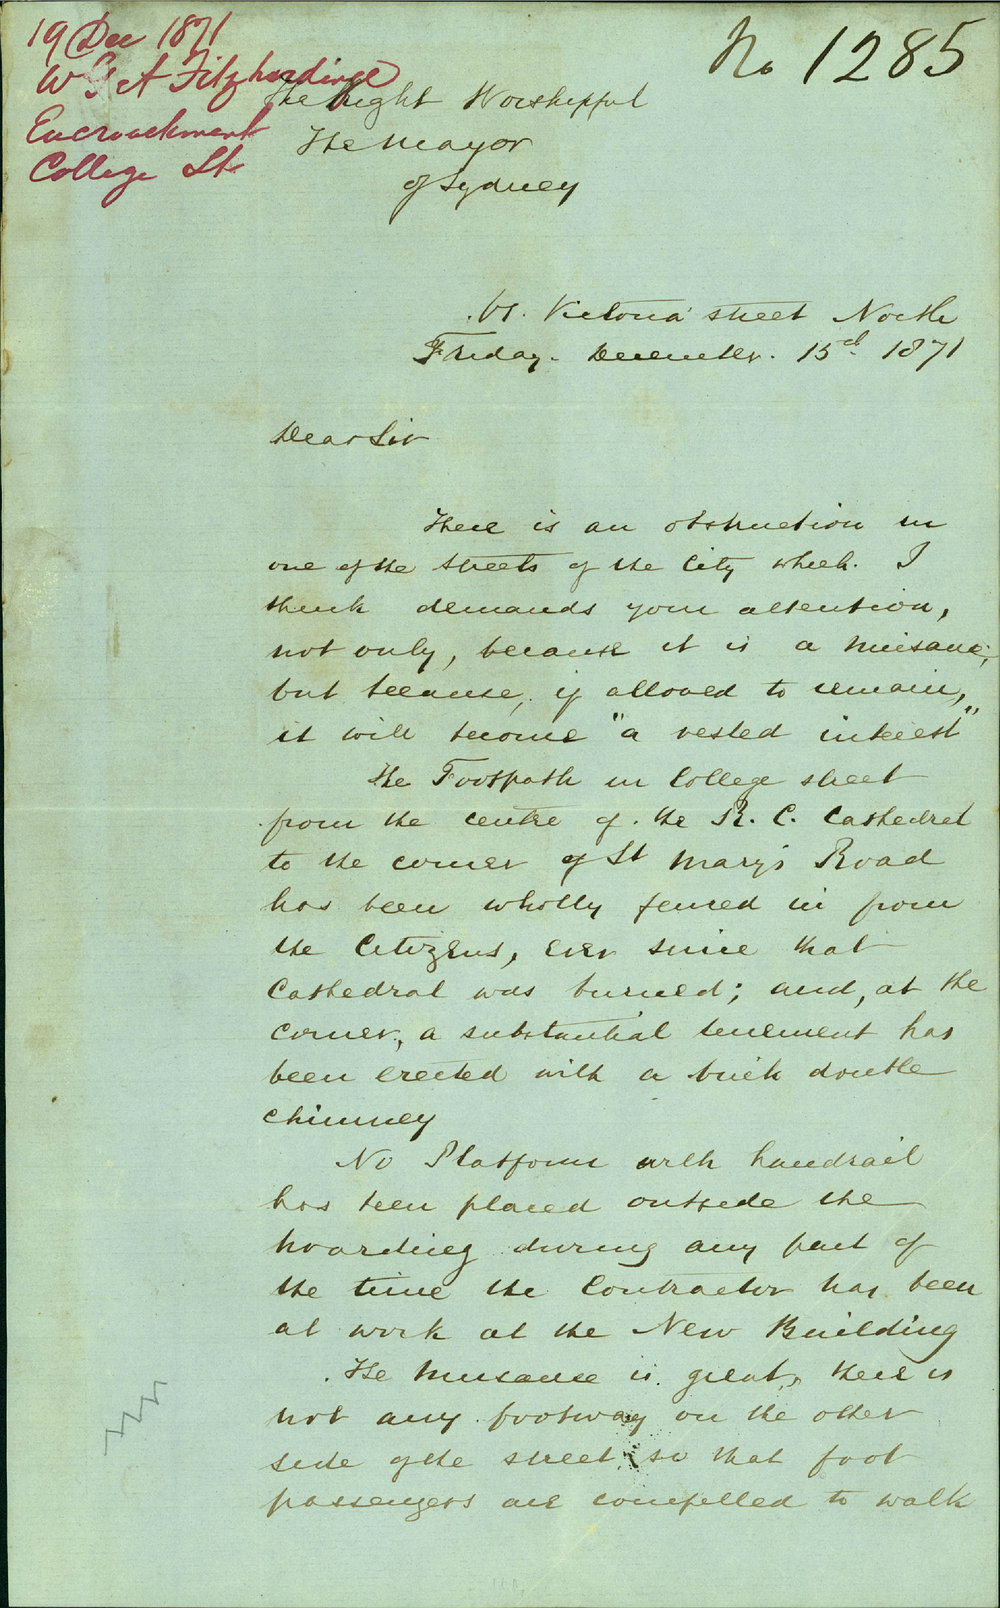 19 Dec 1871
W G A Fitzhardinge
Encroachment
College St.
No 1285
The Right Worshipful
The Mayor
of Sydney
Victoria street North
Friday. December. 15d. 1871
Dear Sir
There is an obstruction in
one of the streets of the City which. I
think demands your attention,
not only, because it is a nuisance,
but because, if allowed to remain,
it will become "a vested interest"
The Footpath in College street
from the centre of. the R. C. Cathedral
to the corner of St Mary's Road
has been wholly fenced in from
the Citizens, ever since that
Cathedral was burned; and, at the
corner, a substantial tenement has
been erected with a brick double
chimney
No Platform with handrail
has been placed outside the
hoarding during any part of
the time the Contractor has been
at work at the New Building
The Nuisance is great, there is
not any footway on the other
side of the street, so that foot
passengers are compelled to walk